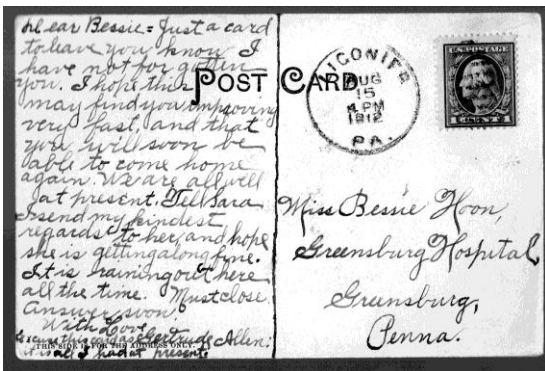 Dear Bessie = Just a card
to leave you know I
have not for gotten
you. I hope this
may find you improving
very fast, and that
you will soon be
able to come home
again. We are all well
at present. Tell Sara
I send my kindest
regards to her, and hope
she is getting along fine.
It is raining out here
all the time. Must close
Answer soon.
With Love
Gertrude Allen.
Excuse this card as
it is all I had at present.
THIS SIDE IS FOR THE ADDRESS ONLY.
POST CARD
LIGONIER
AUG
15
4 PM
1912
PA.
U.S. POSTAGE
1 CENT 1
Miss Bessie Hoon,
Greensburg Hospital
Greensburg,
Penna.